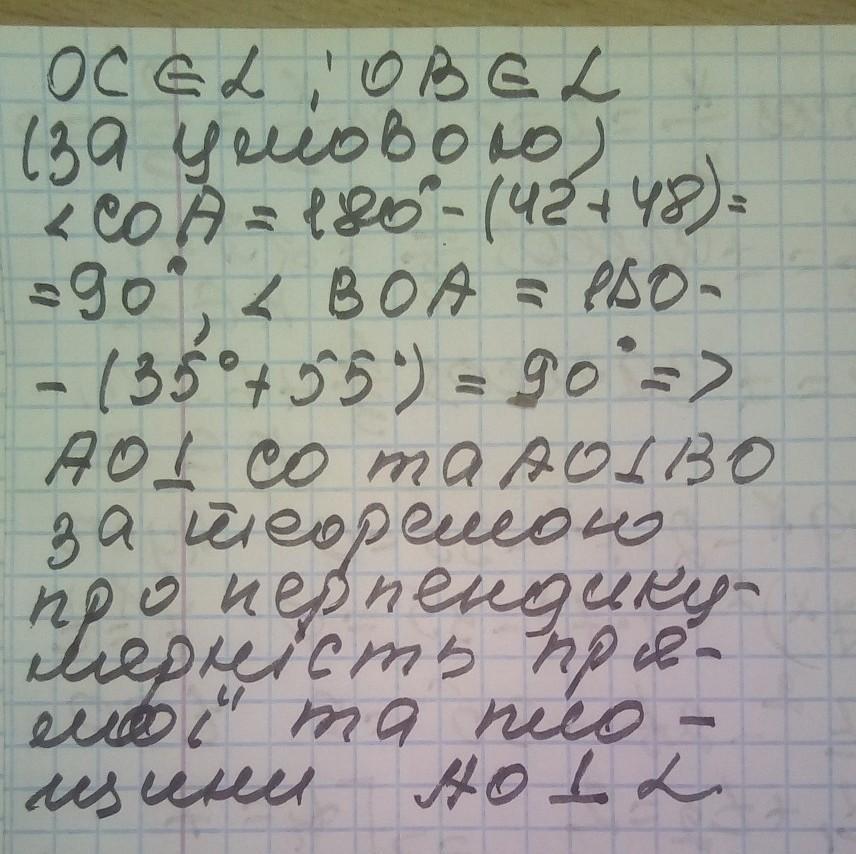 OC ∈ L ; OB ∈ L
(за умовою)
< COA = 180° - (42 + 48) =
= 90°, < BOA = 180 -
- (35° + 55°) = 90° =>
AO ⊥ CO та AO ⊥ BO
за теоремою
про перпендику-
лярність пря-
мої та пло -
щини AO ⊥ L